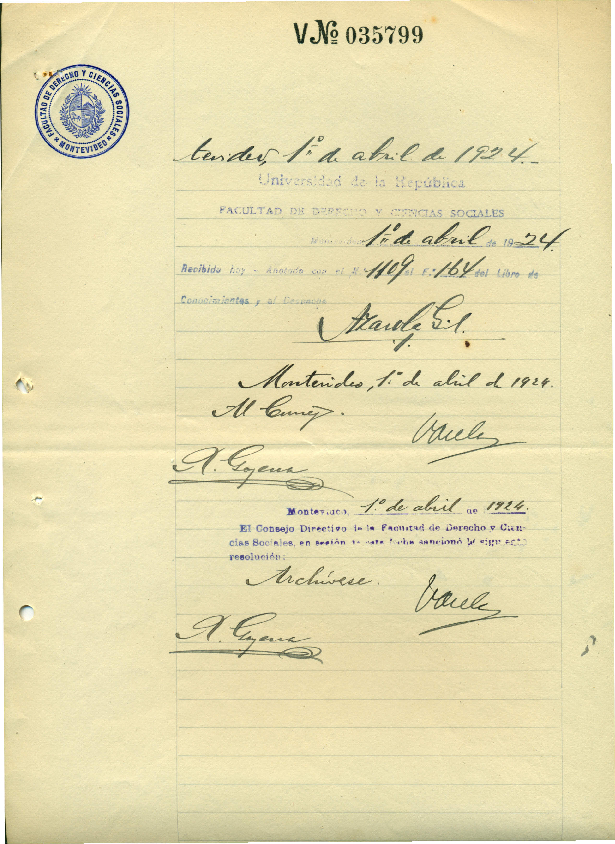 V Nº 035799
FACULTAD DE DERECHO Y CIENCIAS SOCIALES
MONTEVIDEO
tevideo, 1º de abril de 1924.-
Universidad de la República
FACULTAD DE DERECHO Y CIENCIAS SOCIALES
Montevideo, 1º de abril de 1924.
Recibido hoy - Anotado con el Nº 1109 al Fº 164 del Libro de
Conocimientos y al Despacho
Azarola Gil
Montevideo, 1º de abril de 1924.
Al Consejo.
Varela
A. Goyena
Montevideo, 1º de abril de 1924.
El Consejo Directivo de la Facultad de Derecho y Cien-
cias Sociales, en sesión de esta fecha sancionó la siguiente
resolución:
Archívese.
Varela
A. Goyena